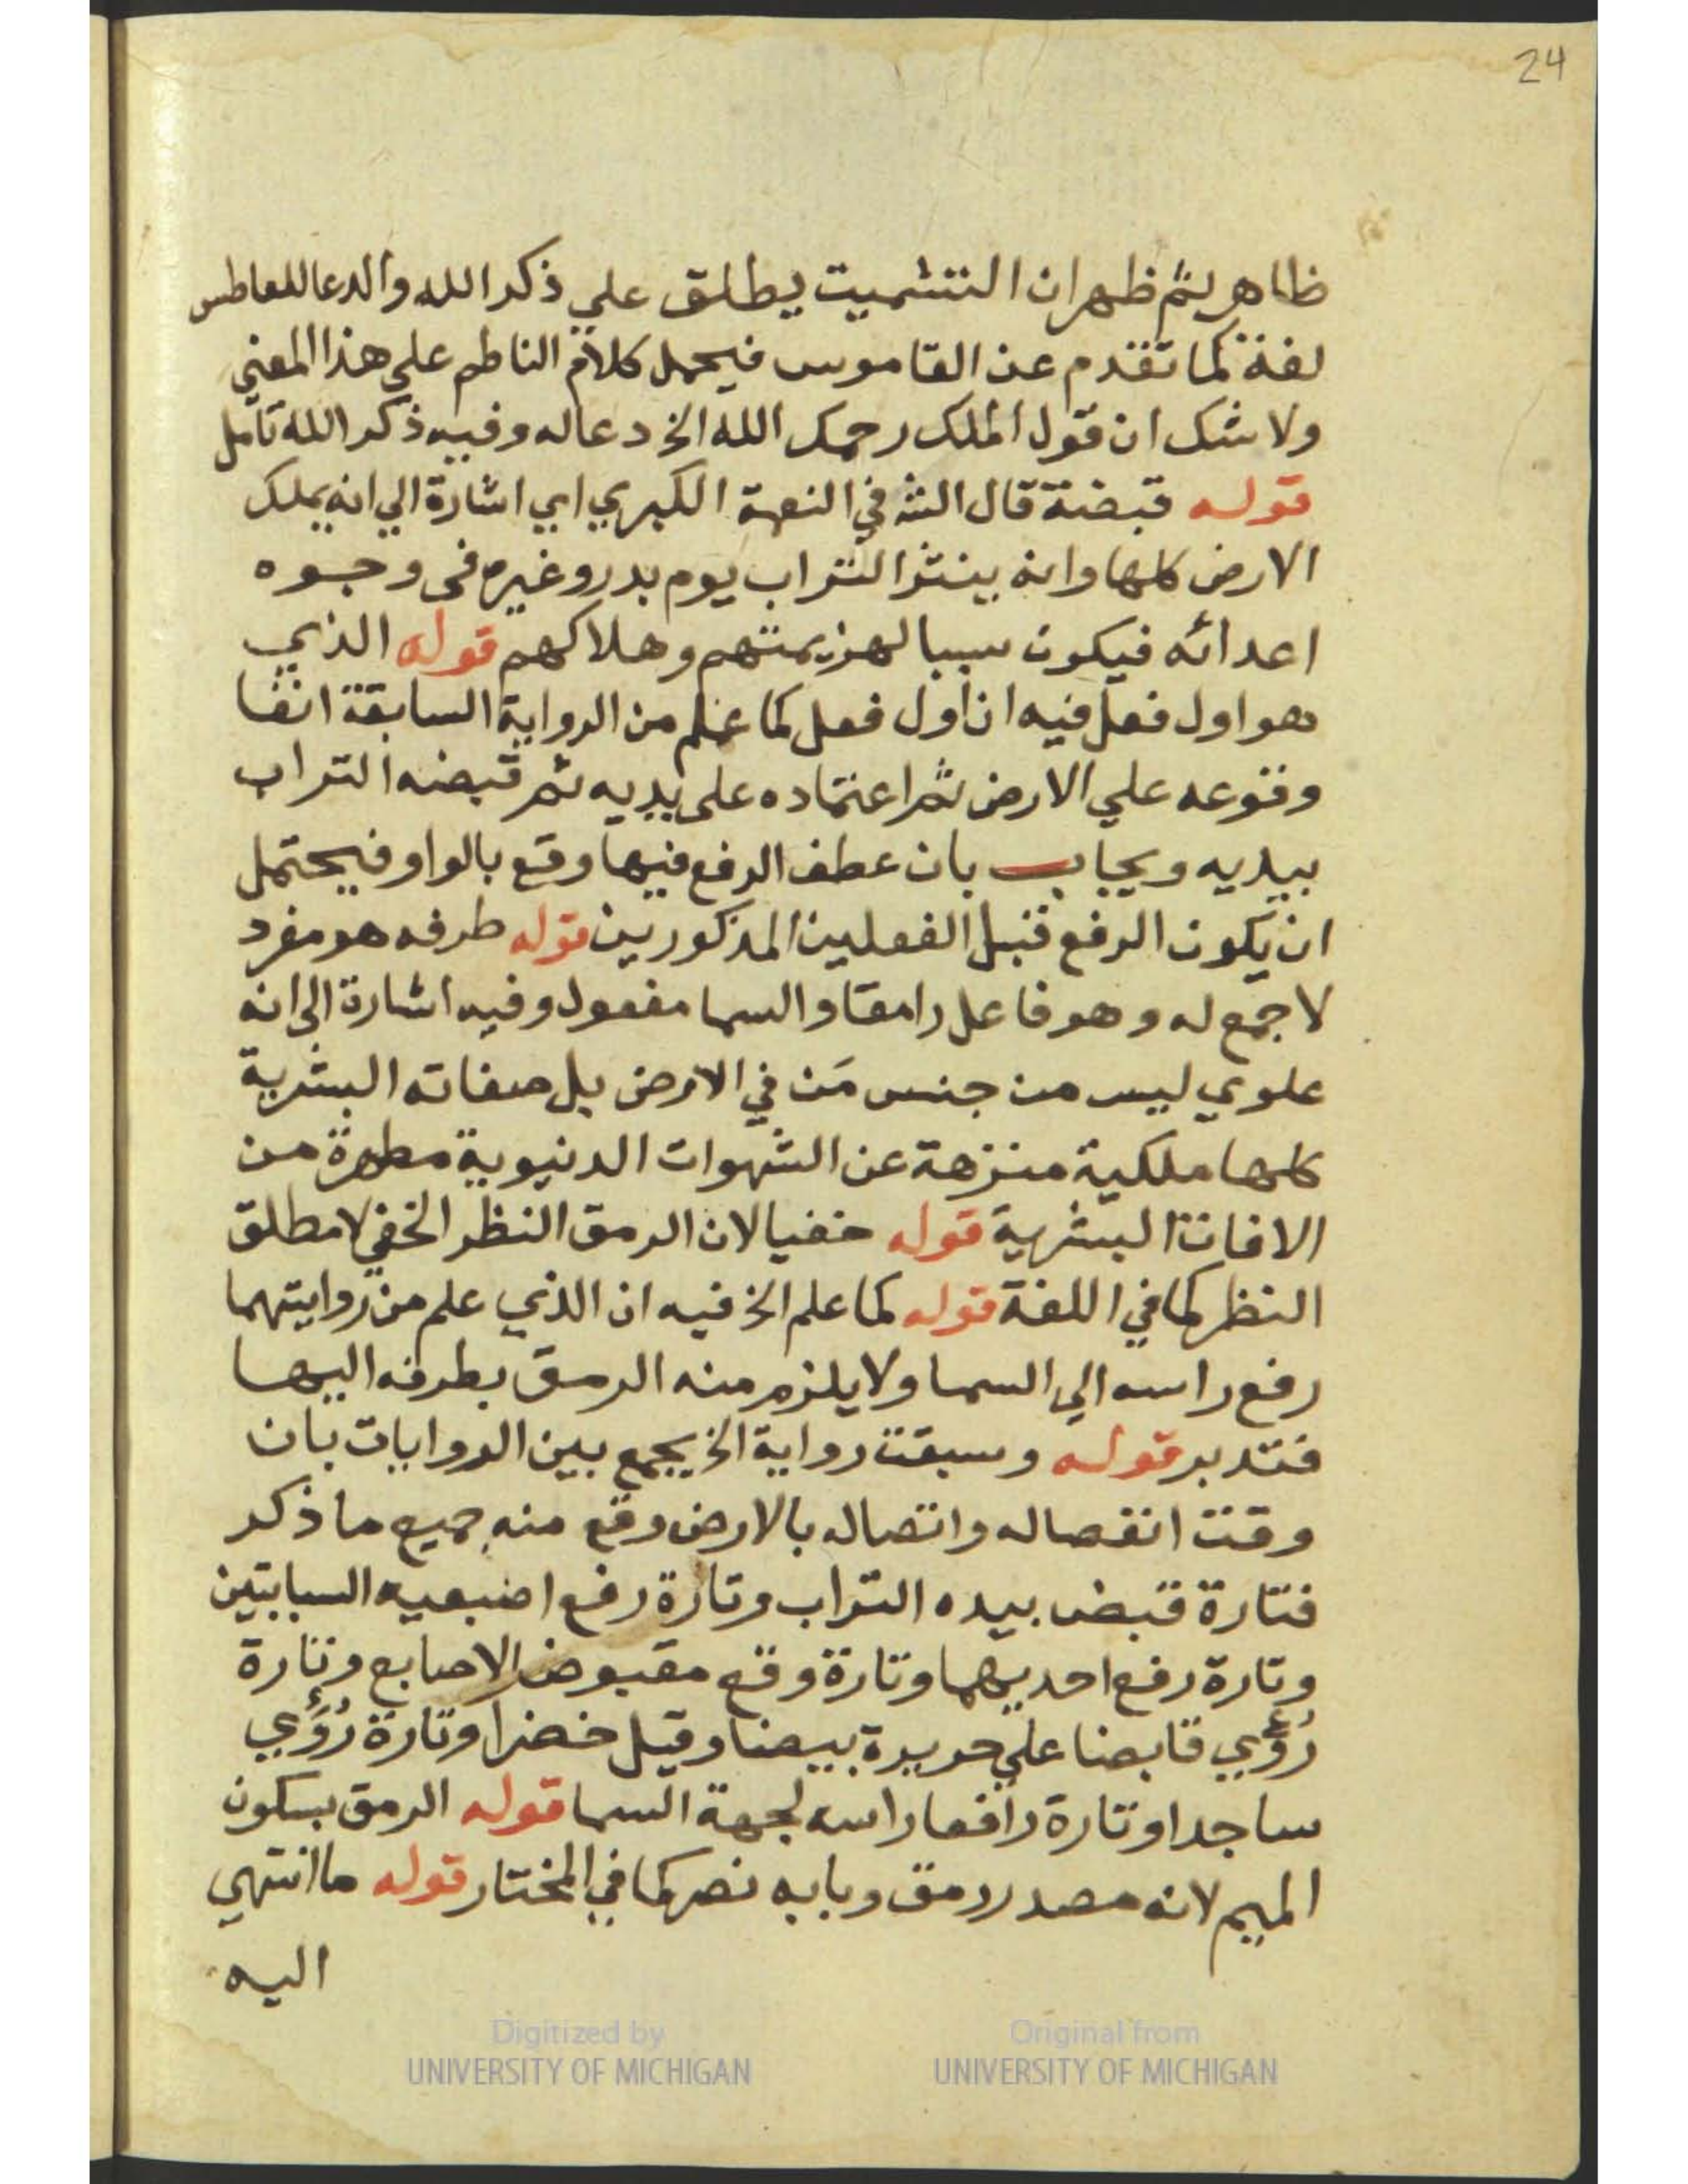 24
ظاهر ثم ظهر ان التشميت يطلق علي ذكر الله والدعا للعاطس
لغة كما تقدم عن القاموس فيحمل كلام الناظم علي هذا المعني
ولا شك ان قول الملك رحمك الله الخ دعا له وفيه ذكر الله تامل
قوله قبضة قال الش في النعمة الكبري اي اشارة الي انه يملك
الارض كلها وانه ينثر التراب يوم بدر وغيره في وجوه
اعدائه فيكون سببا لهزيمتهم وهلاكهم قوله الذي
هو اول فعل فيه ان اول فعل كما علم من الرواية السابقة انفا
وقوعه علي الارض ثم اعتماده على يديه ثم قبضه التراب
بيديه ويجاب بان عطف الرفع فيها وقع بالواو فيحتمل
ان يكون الرفع قبل الفعلين المذكورين قوله طرفه هو مفرد
لا جمع له وهو فاعل رامقا والسما مفعول وفيه اشارة الى انه
علوي ليس من جنس مَن في الارض بل صفاته البشرية
كلها ملكية منزهة عن الشهوات الدنيوية مطهرة من
الافات البشرية قوله خفيا لان الرمق النظر الخفي لا مطلق
النظر كما في اللغة قوله كما علم الخ فيه ان الذي علم من روايتهما
رفع راسه الي السما ولا يلزم منه الرمق بطرفه اليها
فتدبر قوله وسبقت رواية الخ يجمع بين الروايات بان
وقت انفصاله واتصاله بالارض وقع منه جميع ما ذكر
فتارة قبض بيده التراب وتارة رفع اصبعيه السبابتين
وتارة رفع احديهما وتارة وقع مقبوض الاصابع وتارة
رُؤي قابضا علي حريرة بيضا وقيل خضرا وتارة رُؤي
ساجدا وتارة رافعا راسه لجهة السما قوله الرمق بسكون
الميم لانه مصدر رمق وبابه نصر كما في المختار قوله ما انتهي
اليه
Digitized by
UNIVERSITY OF MICHIGAN
Original from
UNIVERSITY OF MICHIGAN